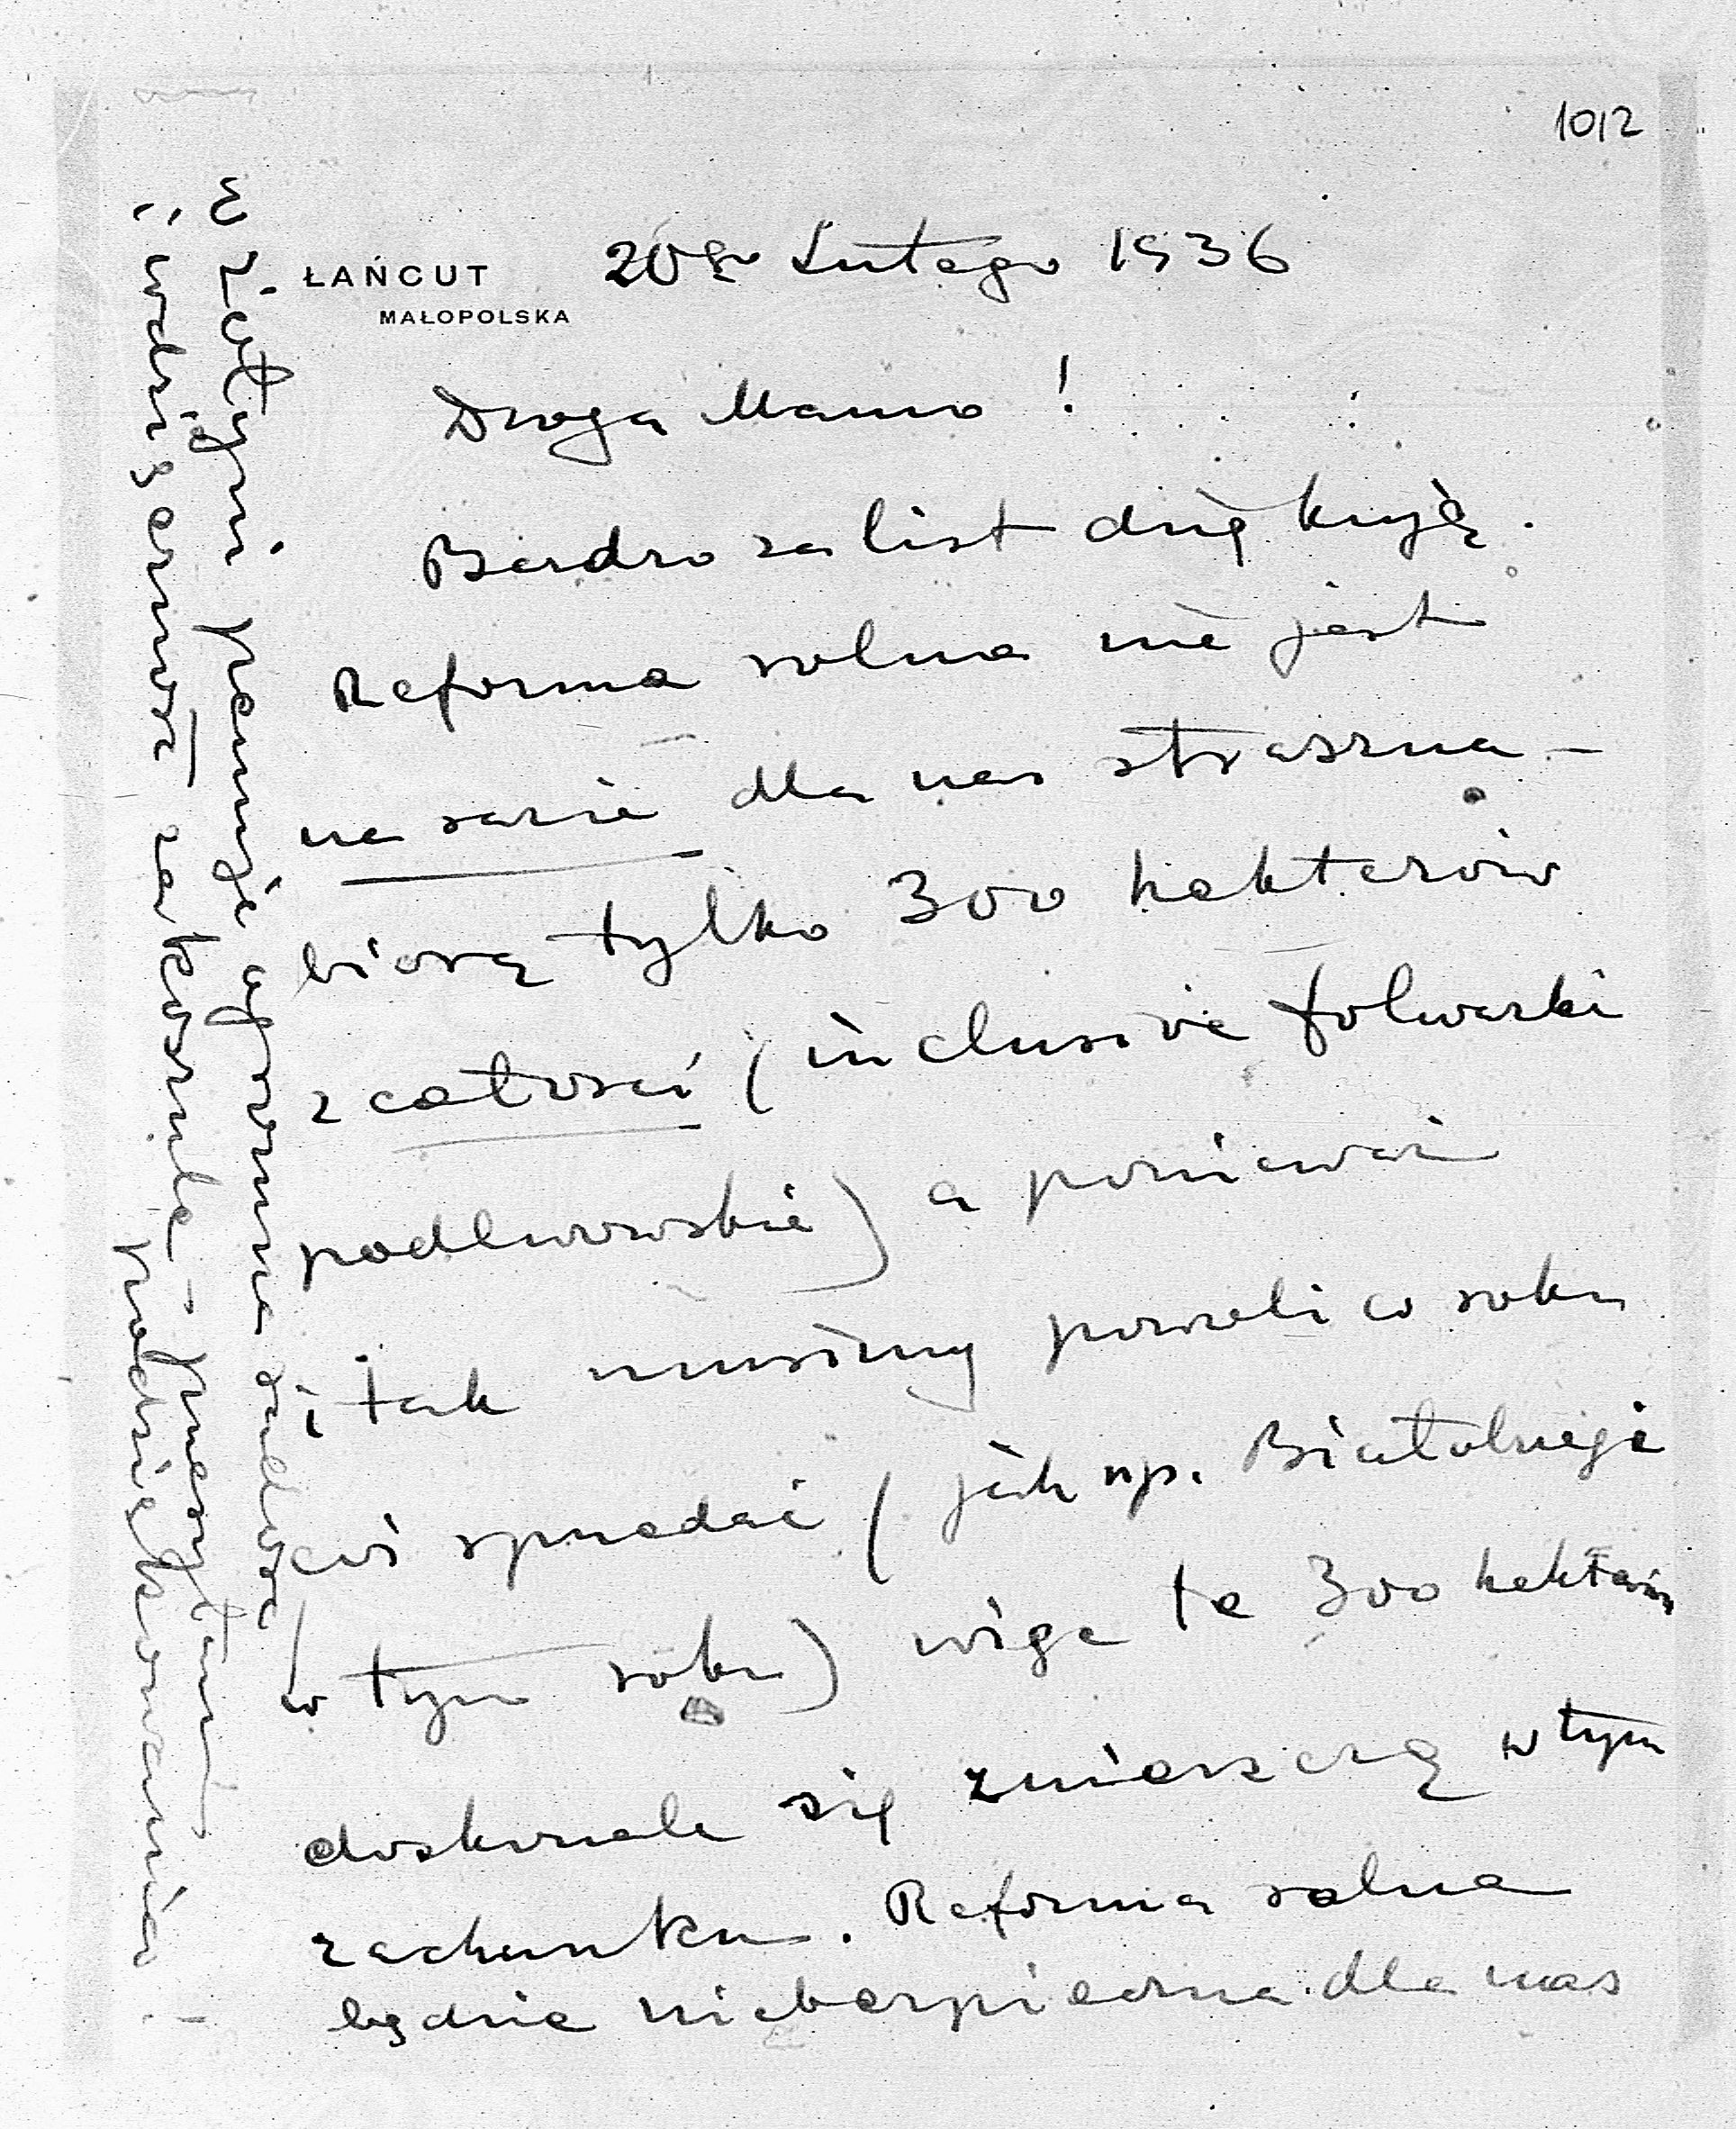 1012
ŁAŃCUT
MAŁOPOLSKA
20go Lutego 1936
Droga Mamo!
Bardzo za list dziękuję.
Reforma rolna nie jest
na razie dla nas straszna –
biorą tylko 300 hektarów
z całości (inclusive folwarki
podlwowskie) a ponieważ
i tak musimy powoli co roku
coś sprzedać (jak np. Białobrzegi
w tym roku) więc te 300 hektarów
doskonale się zmieszczą w tym
rachunku. Reforma rolna
będzie niebezpieczna dla nas
z Zatyki panuje ogromna radość
i wdzięczność za
podziękowania –